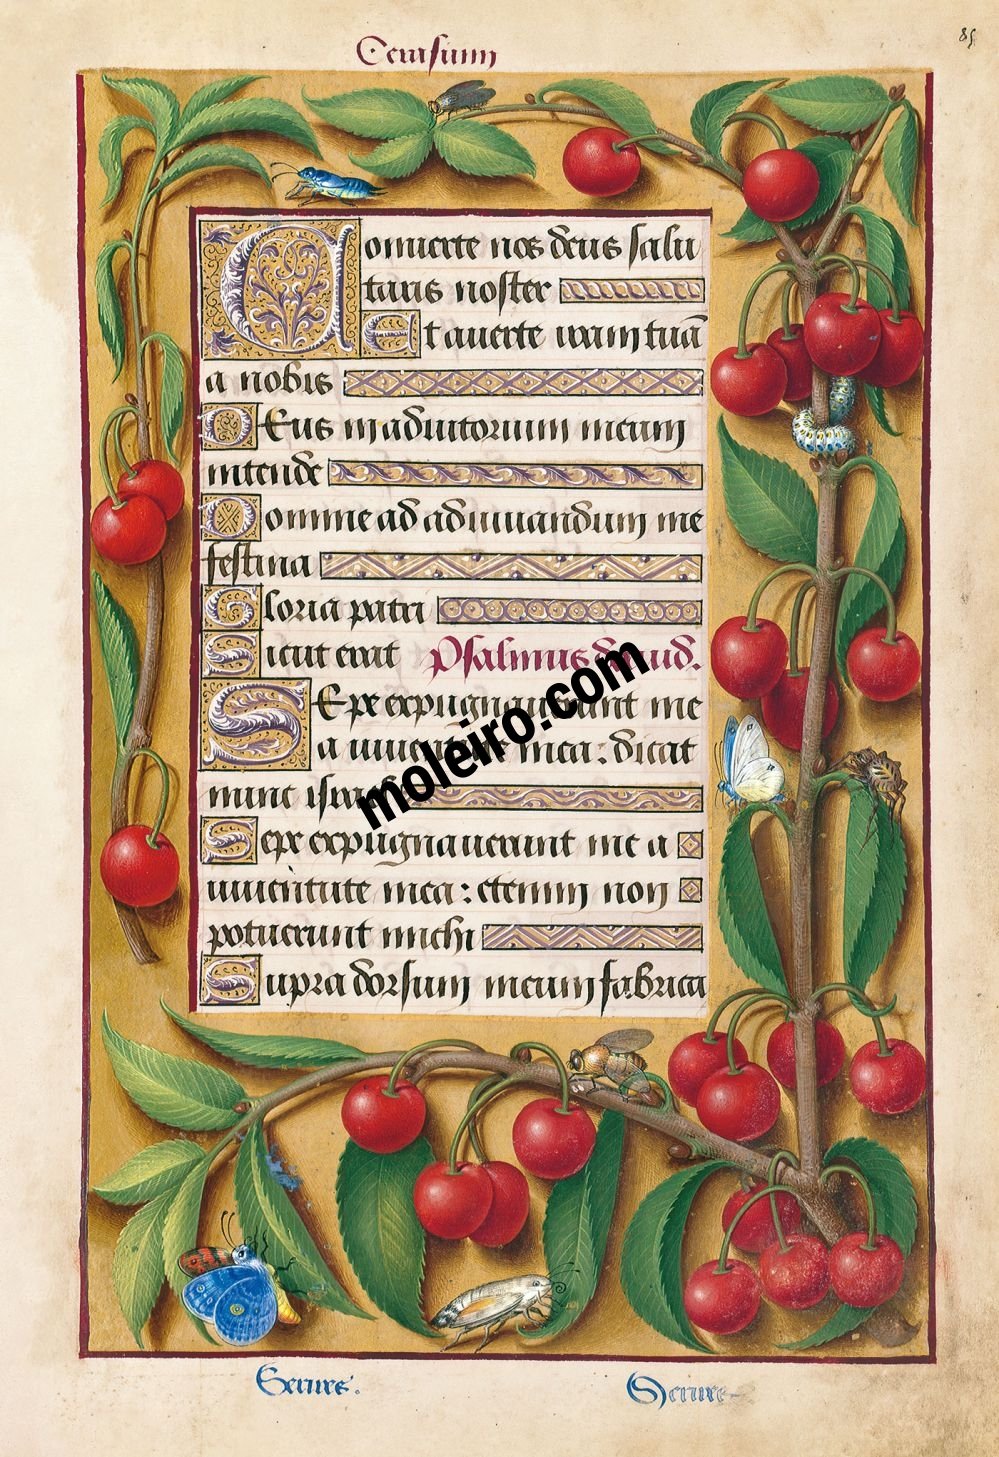 Cerasum
85
Conuerte nos deus salu
taris noster
Et auerte iram tuā
a nobis
Deus in adiutorium meum
intende
Domine ad adiuuandum me
festina
Gloria patri
Sicut erat Psalmus dauid.
Sepe expugnauerunt me
a iuuentute mea: dicat
nunc israhel
Sepe expugnauerunt me a
iuuentute mea: etenim non
potuerunt michi
Supra dorsum meum fabrica
moleiro.com